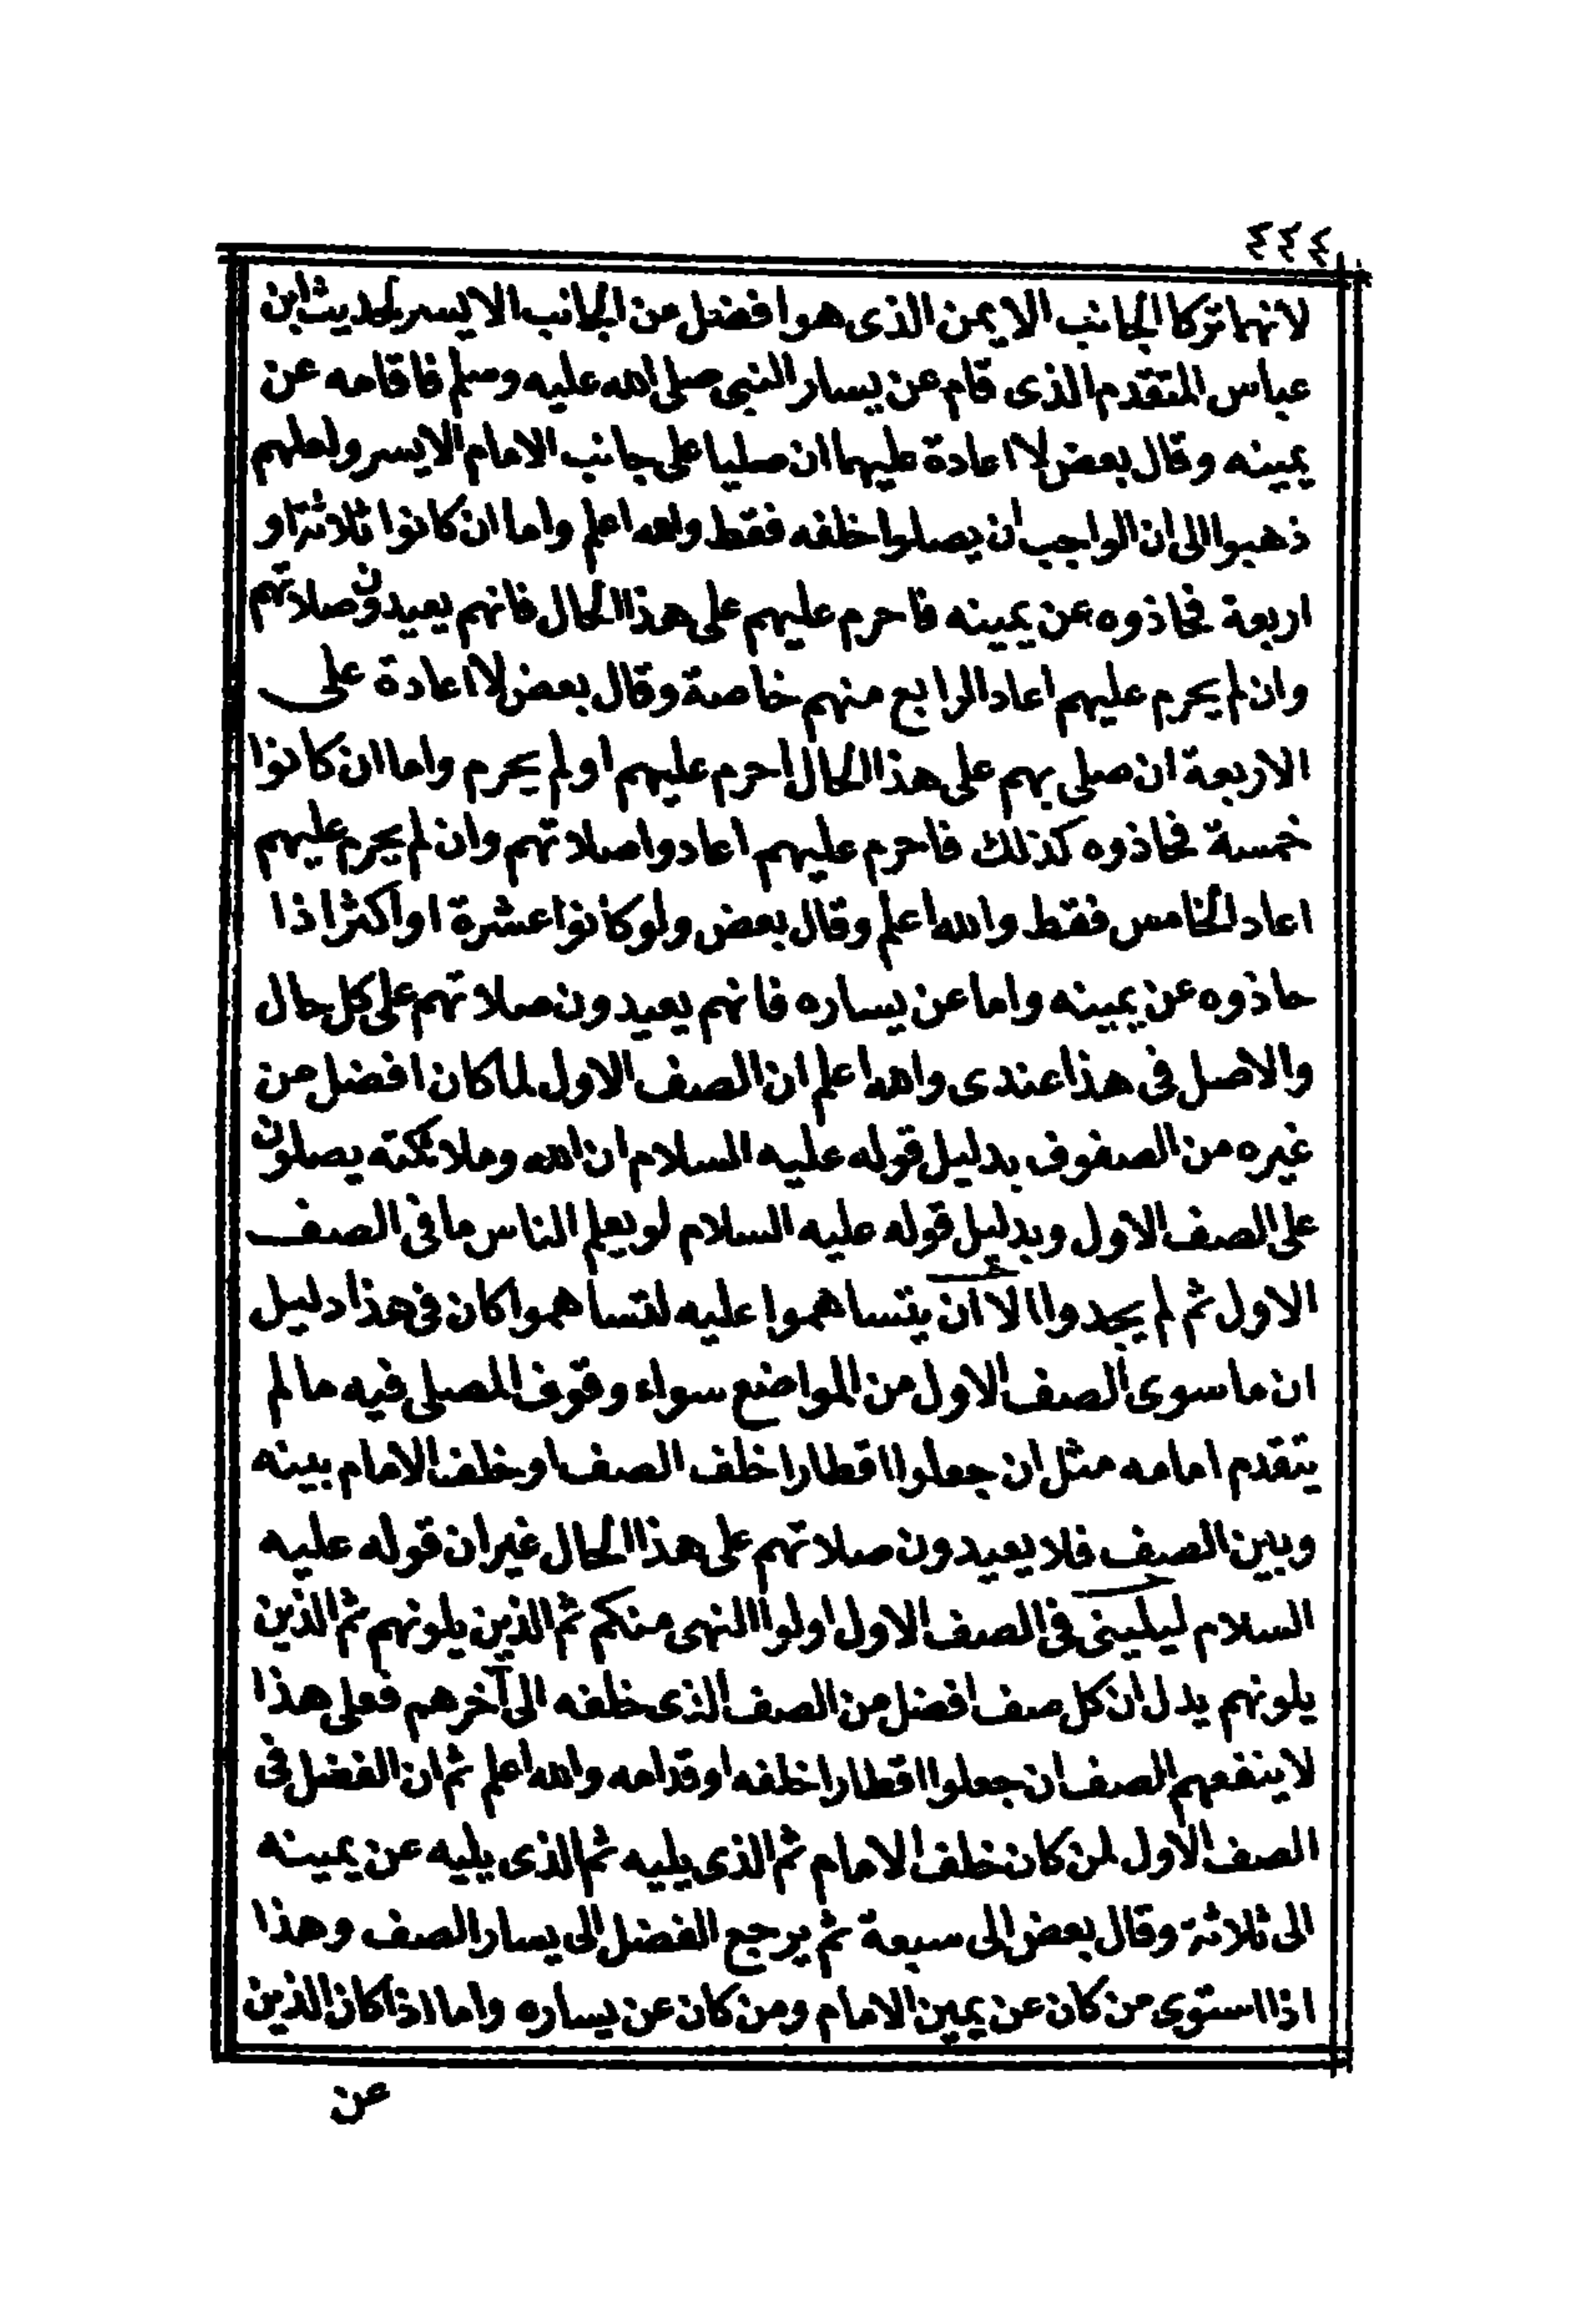 ٤٤٤
لانهما تركا الجانب الايمن الذى هو افضل عن الجانب الايسر لحديث ابن
عباس المتقدم الذى قام عن يسار النبى صلى الله عليه وسلم فاقامه عن
يمينه وقال بعض لا اعادة عليهما ان صليا على جانب الامام الايسر ولعلهم
ذهبوا الى ان الواجب ان يصلوا خلفه فقط والله اعلم واما ان كانوا ثلاثة او
اربعة فحاذوه عن يمينه فاحرم عليهم على هذا الحال فانهم يعيدون صلاتهم
وان لم يحرم عليهم اعاد الرابع منهم خاصة وقال بعض لا اعادة على
الاربعة ان صلى بهم على هذا الحال احرم عليهم او لم يحرم واما ان كانوا
خمسة فحاذوه كذلك فاحرم عليهم اعادوا صلاتهم وان لم يحرم عليهم
اعاد الخامس فقط والله اعلم وقال بعض ولو كانوا عشرة او اكثر اذا
حاذوه عن يمينه واما عن يساره فانهم يعيدون صلاتهم على كل حال
والاصل فى هذا عندى والله اعلم ان الصف الاول لما كان افضل من
غيره من الصفوف بدليل قوله عليه السلام ان الله وملائكته يصلون
على الصف الاول وبدليل قوله عليه السلام لو يعلم الناس ما فى الصف
الاول ثم لم يجدوا الا ان يتساهموا عليه لتساهموا كان فى هذا دليل
ان ما سوى الصف الاول من المواضع سواء وقوف المصلى فيه ما لم
يتقدم امامه مثل ان جعلوا اقطارا خلف الصف او خلف الامام بينه
وبين الصف فلا يعيدون صلاتهم على هذا الحال غير ان قوله عليه
السلام ليلينى فى الصف الاول اولوا النهى منكم ثم الذين يلونهم ثم الذين
يلونهم يدل ان كل صف افضل من الصف الذى خلفه الى آخرهم فعلى هذا
لا ينفعهم الصف ان جعلوا اقطارا خلفه او قدامه والله اعلم ثم ان الفضل فى
الصف الاول لمن كان خلف الامام ثم الذى يليه ثم الذى يليه عن يمينه
الى ثلاثة وقال بعض الى سبعة ثم يرجع الفضل الى يسار الصف وهذا
اذا استوى من كان عن يمين الامام ومن كان عن يساره واما اذا كان الذين
عن